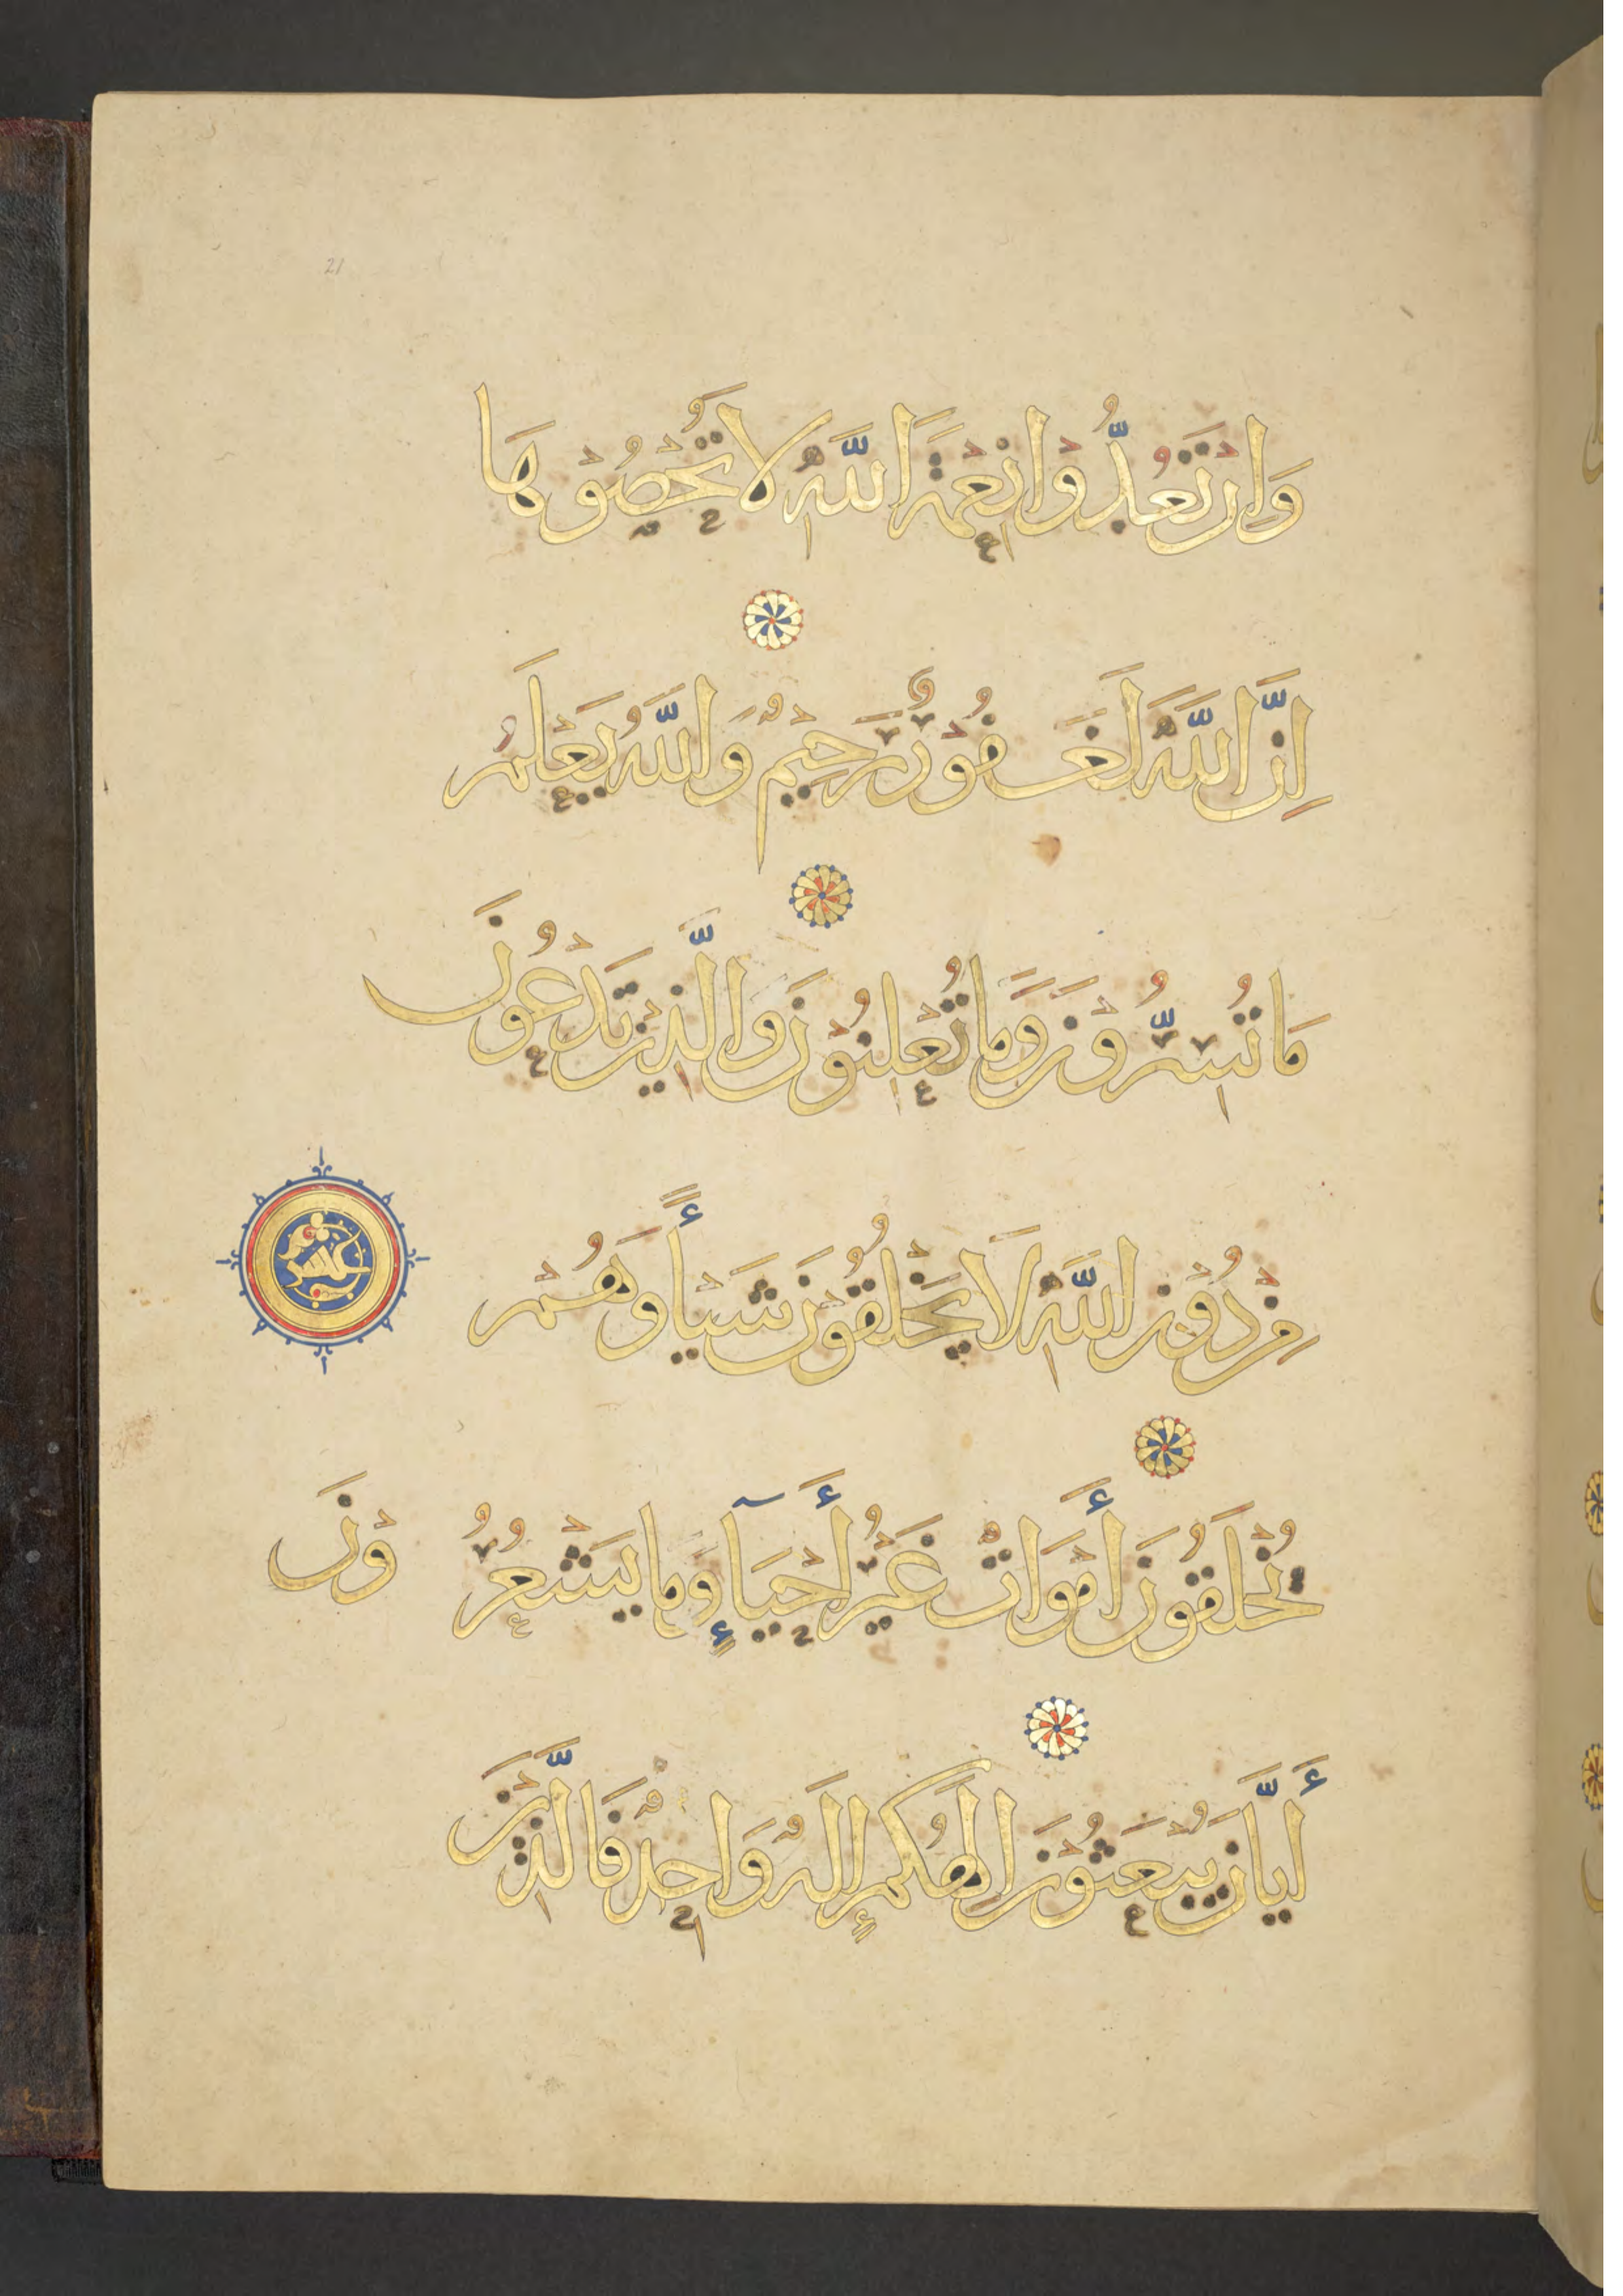 21
وَإِنْ تَعُدُّوْا نِعْمَةَ اللَّهِ لَا تُحْصُوْهَا
إِنَّ اللَّهَ لَغَفُوْرٌ رَحِيْمٌ وَاللَّهُ يَعْلَمُ
مَا تُسِرُّوْنَ وَمَا تُعْلِنُوْنَ وَالَّذِيْنَ تَدْعُوْنَ
مِنْ دُوْنِ اللَّهِ لَا يَخْلُقُوْنَ شَيْـأً وَهُمْ
عشر
يُخْلَقُوْنَ أَمْوَاتٌ غَيْرُ أَحْيَآءٍ وَمَا يَشْعُرُوْنَ
أَيَّانَ يُبْعَثُوْنَ إِلَهُكُمْ إِلَهٌ وَاحِدٌ فَالَّذِيْنَ